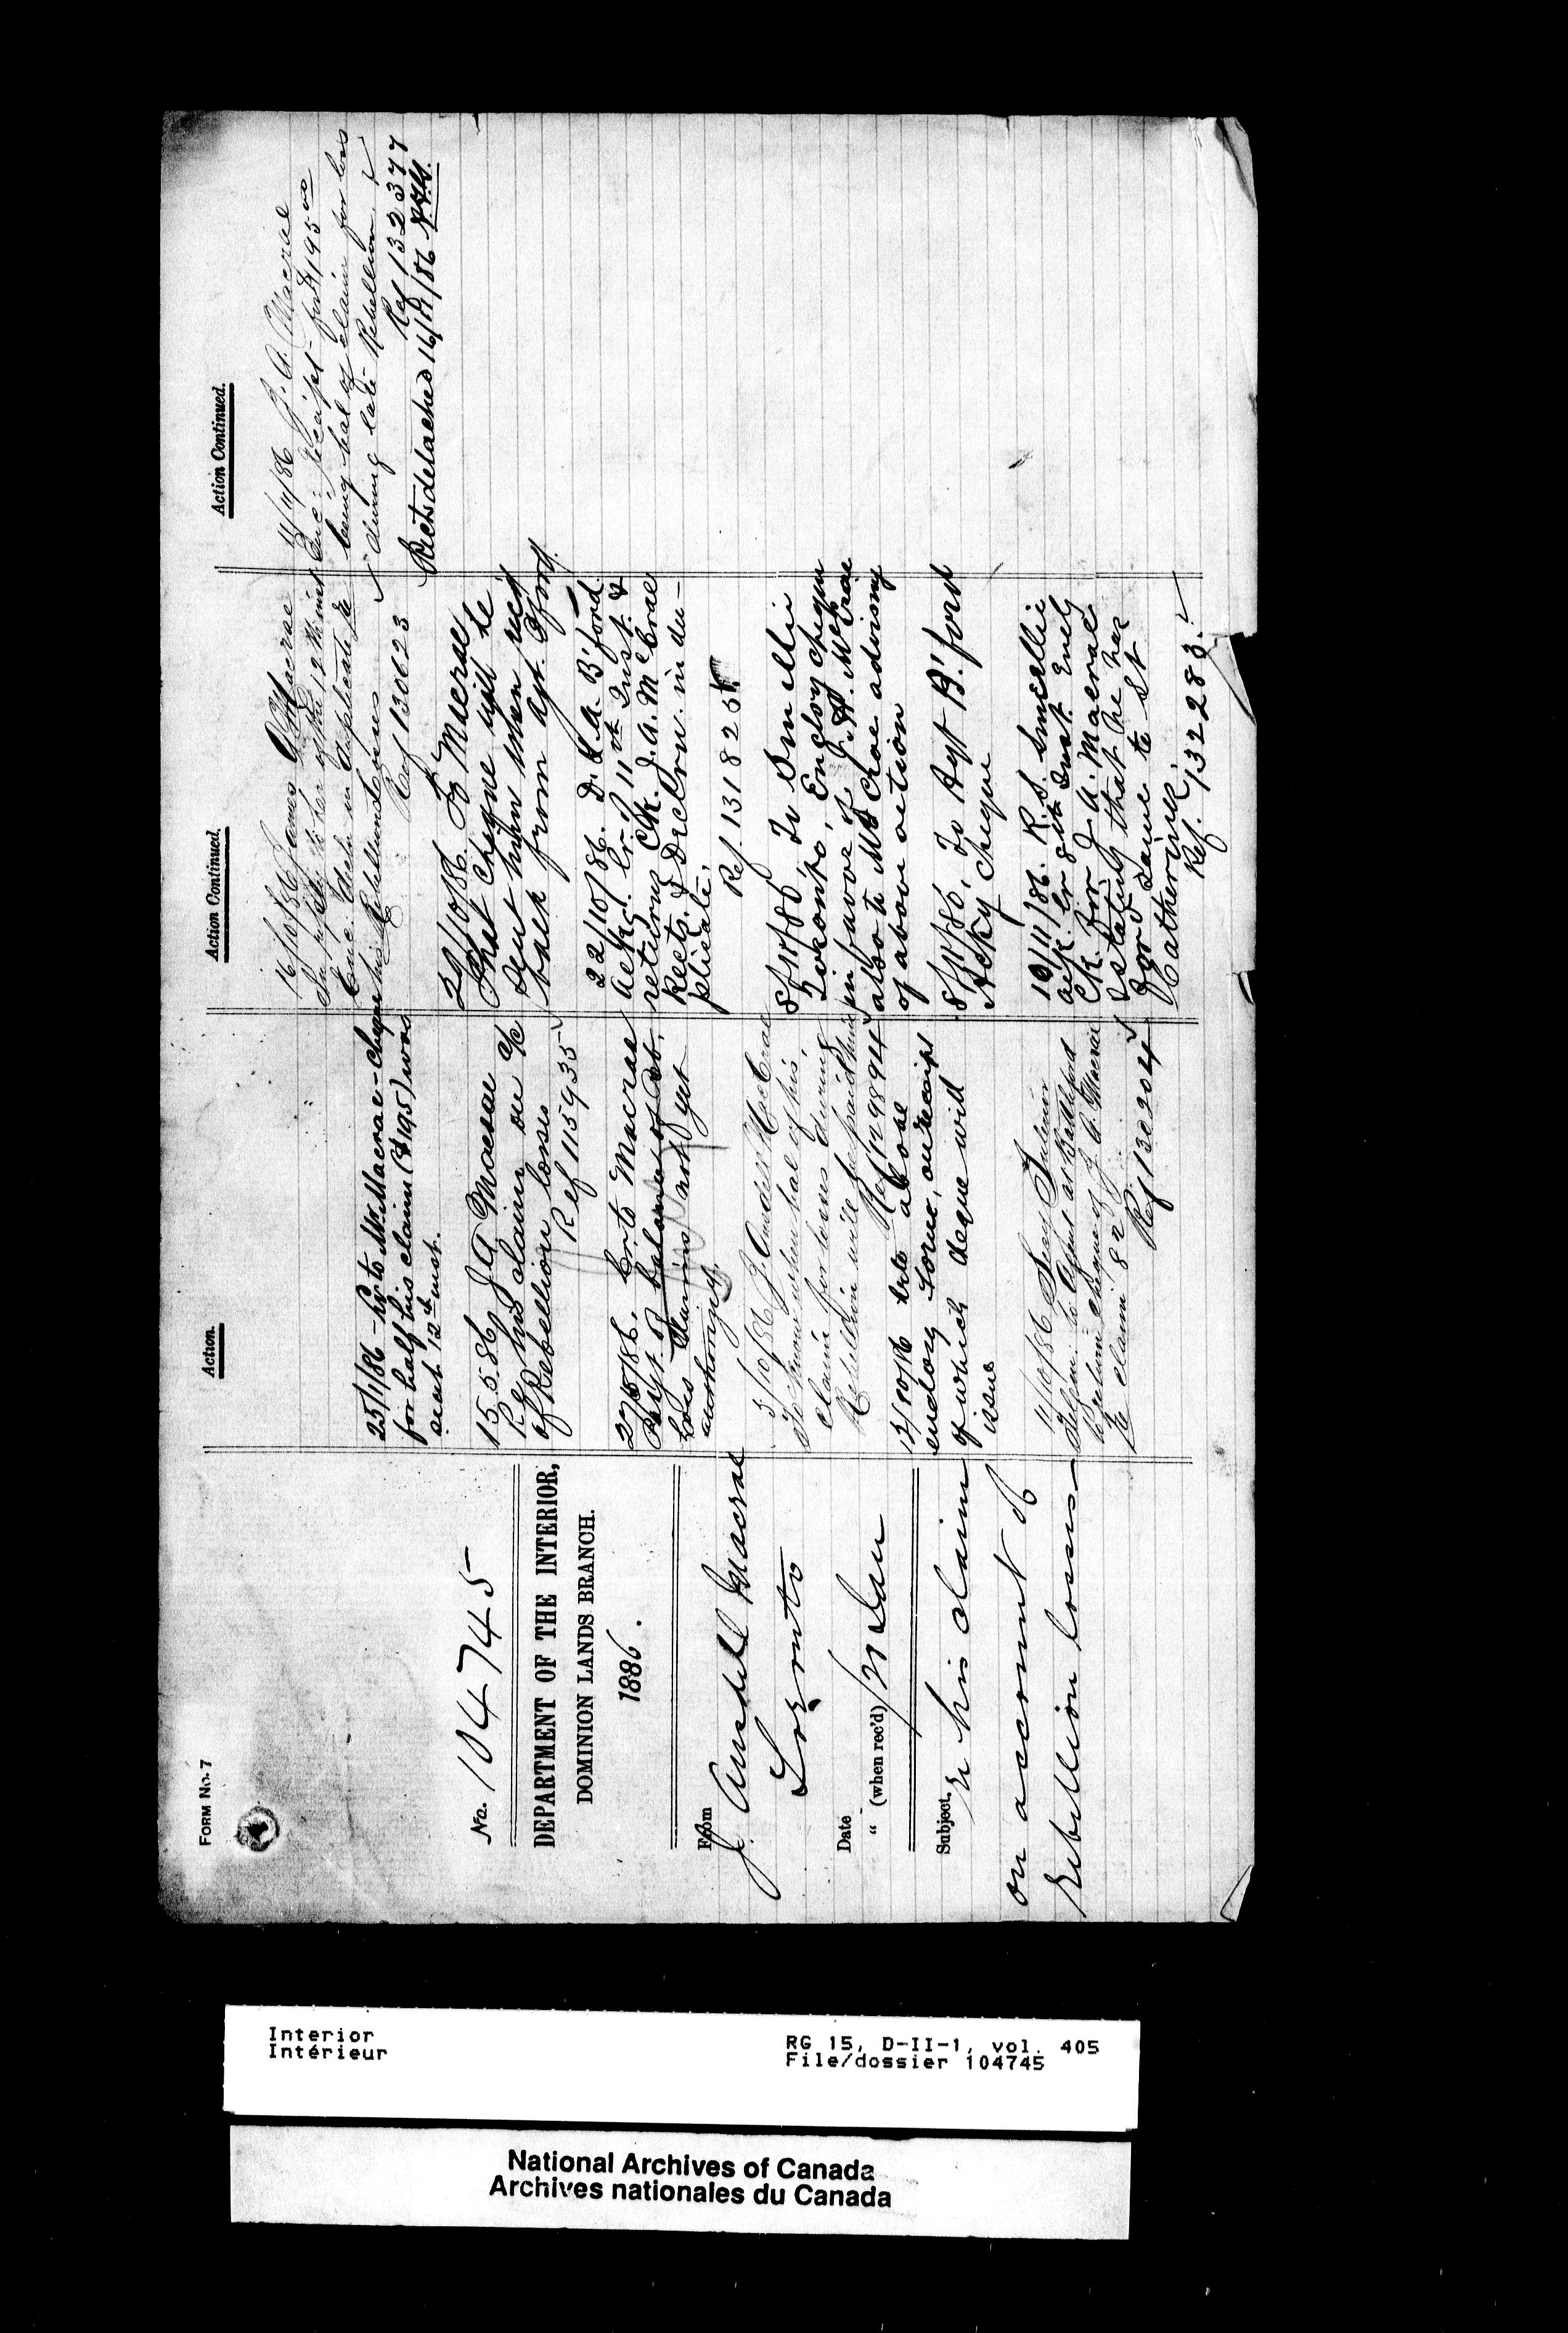 FORM No. 7
No. 104745
DEPARTMENT OF THE INTERIOR,
DOMINION LANDS BRANCH.
1886.
From
J. Ansdell Macrae
Toronto
Date
" (when rec'd) 21 Jan
Subject. re his claim
on account of
rebellion losses
Action.
25/1/86 - Lr to Mr. Macrae - cheque
for half his claim ($195) was
sent 12th inst.
15.5.86 J A Macrae
Re his claim on a/c
of Rebellion losses
Ref 115935
27/5/86. Lr to Macrae
Payt of balance of Reb.
Loss claims not yet
authorized.
5/10/86 J. Ansdell MacCrae
To know when bal of his
claim for losses during
Rebellion will be paid him
Ref 129894
12/10/86 to above
enclosg forme, on receipt
of which cheque will
issue
11/10/86
Telegm: to Agent at Battleford
to return cheque of J. A. Macrae
re claim 82
Ref 130204
Action Continued.
16/10/86 James A Macrae
In reply to her of the 12th inst
Enc: in duplicate re
his Rebellion losses
Ref 130623
22/10/86. To Macrae
That cheque will be
sent him when rec'd
back from agt. B'ford.
22/10/86. D. L. A. B'ford
Ack. Lr. 11th Inst. &
returns Ck. J. A. McCrae
Rects. & Declrn. in du-
plicate.
Ref. 131825
8/11/86, To
Toronto, Enclosg cheque
in favor of J. A. McCrae
also to McCrae advising
of above action
8/11/86, To Agt B'ford
Ackg cheque
10/11/86. R. S. Smellie
ack. Lr 8th Inst. Enclg
Ck. for J. A. Macrae
& stating that he has
ford same to St
Catherines.
Ref. 132283.
Action Continued.
11/11/86 J. A. Macrae
Enc: Receipt for $195.00
being bal of claim for loss
during late Rebellion.
Ref 132377
Rects detached 16/11/86
Interior
Intérieur
RG 15, D-II-1, vol. 405
File/dossier 104745
National Archives of Canada
Archives nationales du Canada